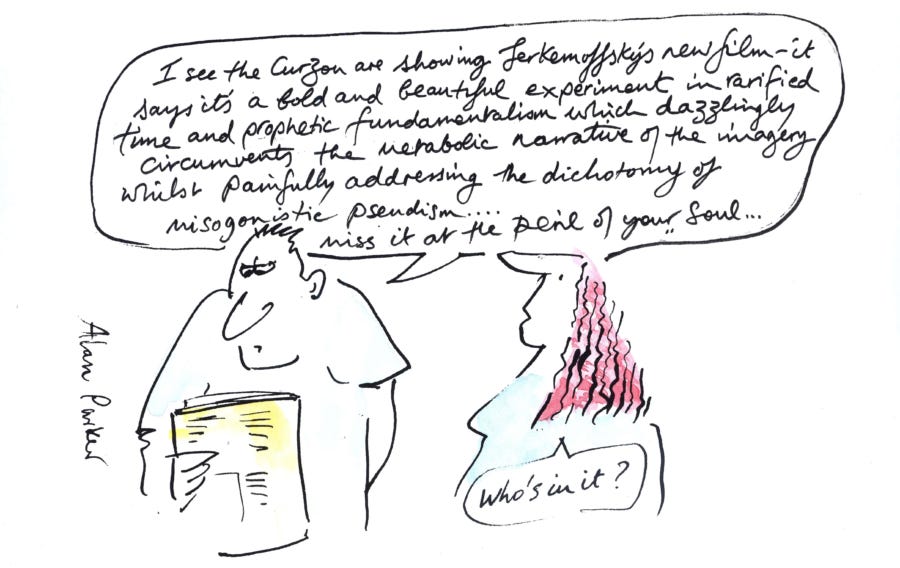 I see the Curzon are showing Jerkemoffsky's new film - it
says it's a bold and beautiful experiment in rarified
time and prophetic fundamentalism which dazzlingly
circumvents the metabolic narrative of the imagery
whilst painfully addressing the dichotomy of
misogonistic pseudism....
miss it at the peril of your soul...
Who's in it?
Alan Parker